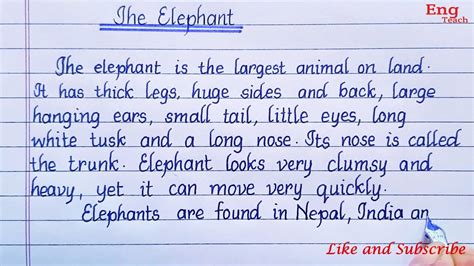 The Elephant
Eng
Teach
The elephant is the largest animal on land.
It has thick legs, huge sides and back, large
hanging ears, small tail, little eyes, long
white tusk and a long nose. Its nose is called
the trunk. Elephant looks very clumsy and
heavy, yet it can move very quickly.
Elephants are found in Nepal, India an
Like and Subscribe